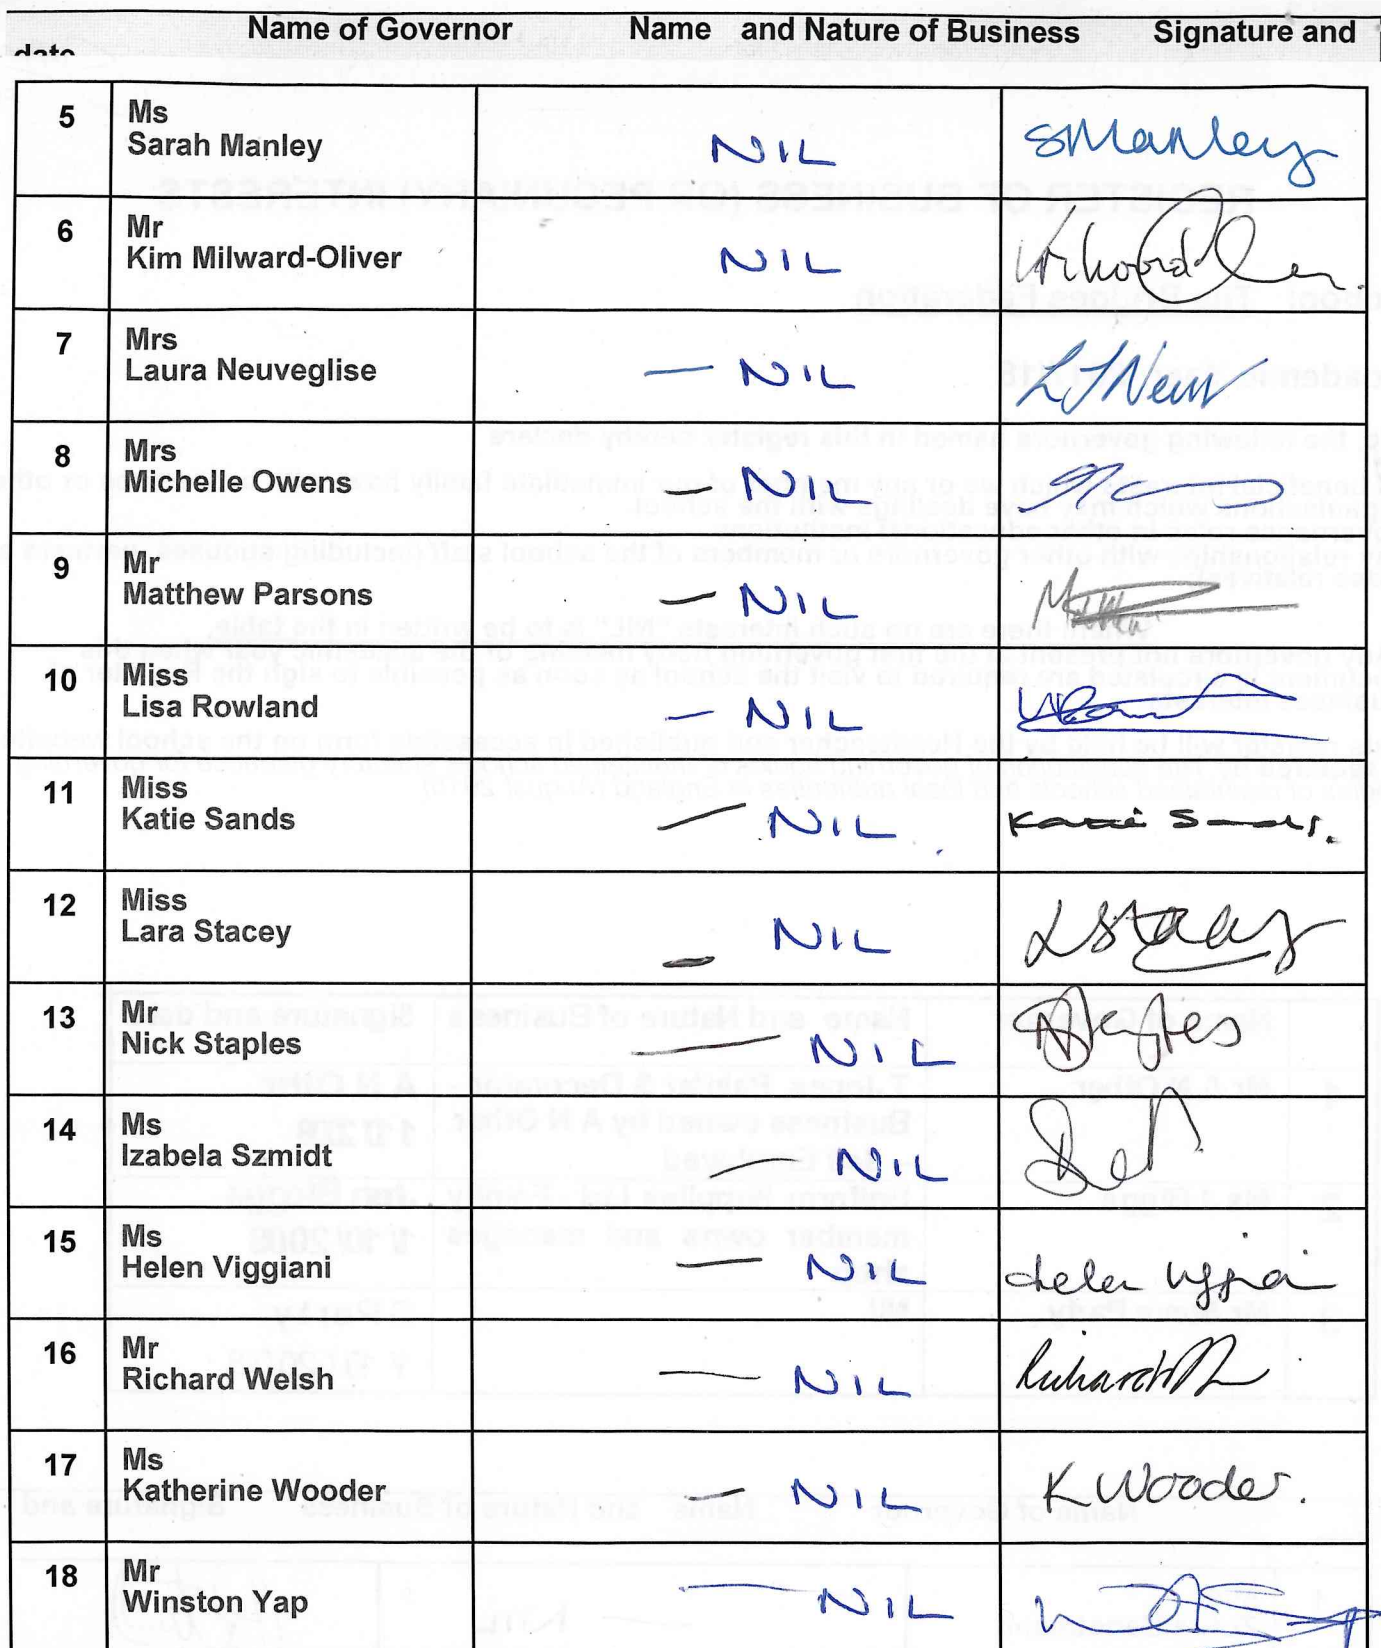 Name of Governor Name and Nature of Business Signature and
date
5 Ms
Sarah Manley NIL SManley
6 Mr
Kim Milward-Oliver NIL
7 Mrs
Laura Neuveglise — NIL
8 Mrs
Michelle Owens — NIL
9 Mr
Matthew Parsons — NIL
10 Miss
Lisa Rowland — NIL
11 Miss
Katie Sands — NIL Katie Sands.
12 Miss
Lara Stacey — NIL LStacey
13 Mr
Nick Staples — NIL Staples
14 Ms
Izabela Szmidt — NIL
15 Ms
Helen Viggiani — NIL Helen Viggiani
16 Mr
Richard Welsh — NIL Richard
17 Ms
Katherine Wooder — NIL K Wooder.
18 Mr
Winston Yap — NIL